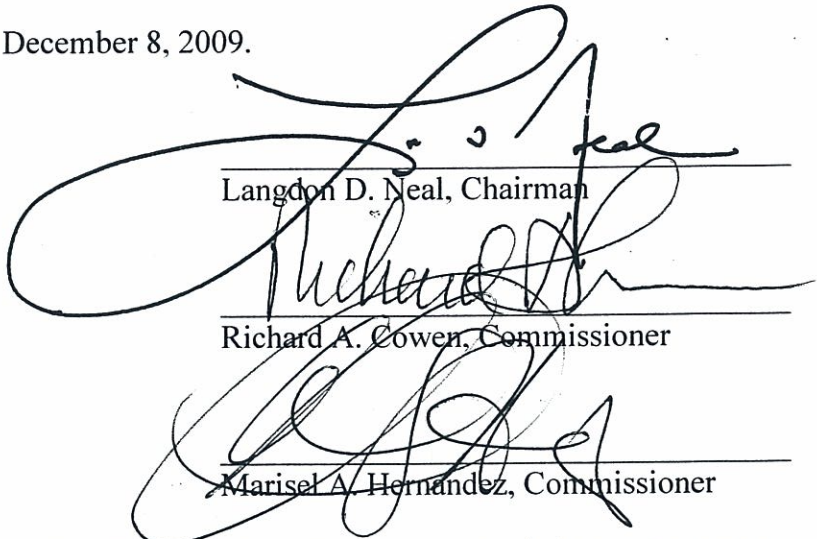 December 8, 2009.
Neal
Langdon D. Neal, Chairman
Richard
Richard A. Cowen, Commissioner
Marisel A. Hernandez, Commissioner